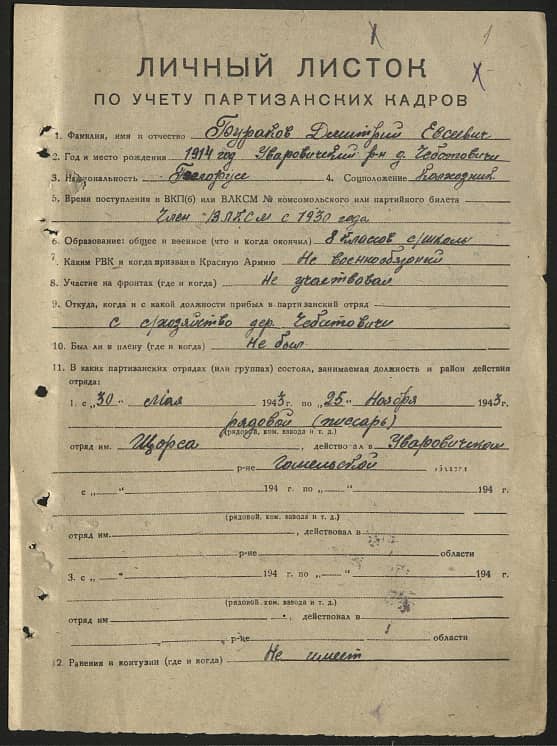 ЛИЧНЫЙ ЛИСТОК
ПО УЧЕТУ ПАРТИЗАНСКИХ КАДРОВ
1. Фамилия, имя и отчество Бураков Дмитрий Евсеевич
2. Год и место рождения 1914 год Уваровичский р-н д. Чеботовичи
3. Национальность Белорус 4. Соцположение Колхозник
5. Время поступления в ВКП(б) или ВЛКСМ № комсомольского или партийного билета
Член ВЛКСМ с 1930 года
6. Образование: общее и военное (что и когда окончил) 8 классов с/школы
7. Каким РВК и когда призван в Красную Армию Не военнообязанный
8. Участие на фронтах (где и когда) Не участвовал
9. Откуда, когда и с какой должности прибыл в партизанский отряд
с с/хозяйство дер. Чеботовичи
10. Был ли в плену (где и когда) Не был
11. В каких партизанских отрядах (или группах) состоял, занимаемая должность и район действия
отряда:
1. с „30" мая 1943 г. по „25" Ноября 1943 г.
рядовой (писсарь)
(рядовой, ком. взвода и т. д.)
отряд им. Щорса, действовал в Уваровичском
р-не Гомельской области
с „—" 194 г. по „—" 194 г.
(рядовой, ком. взвода и т. д.)
отряд им. , действовал в
р-не области
3. с „—" 194 г. по „—" 194 г.
(рядовой, ком. взвода и т. д.)
отряд им , действовал в
р-не области
12. Ранения и контузии (где и когда) Не имеет